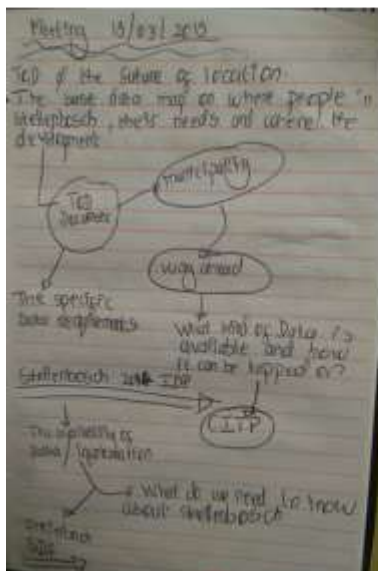 Meeting 13/03/2013
TCD & the future of location.
The base data map on where people in
stellenbosch, their needs and where the
development
TCD
municipality
way ahead
The specific
Data requirements
What kind of Data is
available and how
it can be tapped on?
Stellenbosch IDP
The of
Data/
What do we need to know
about stellenbosch